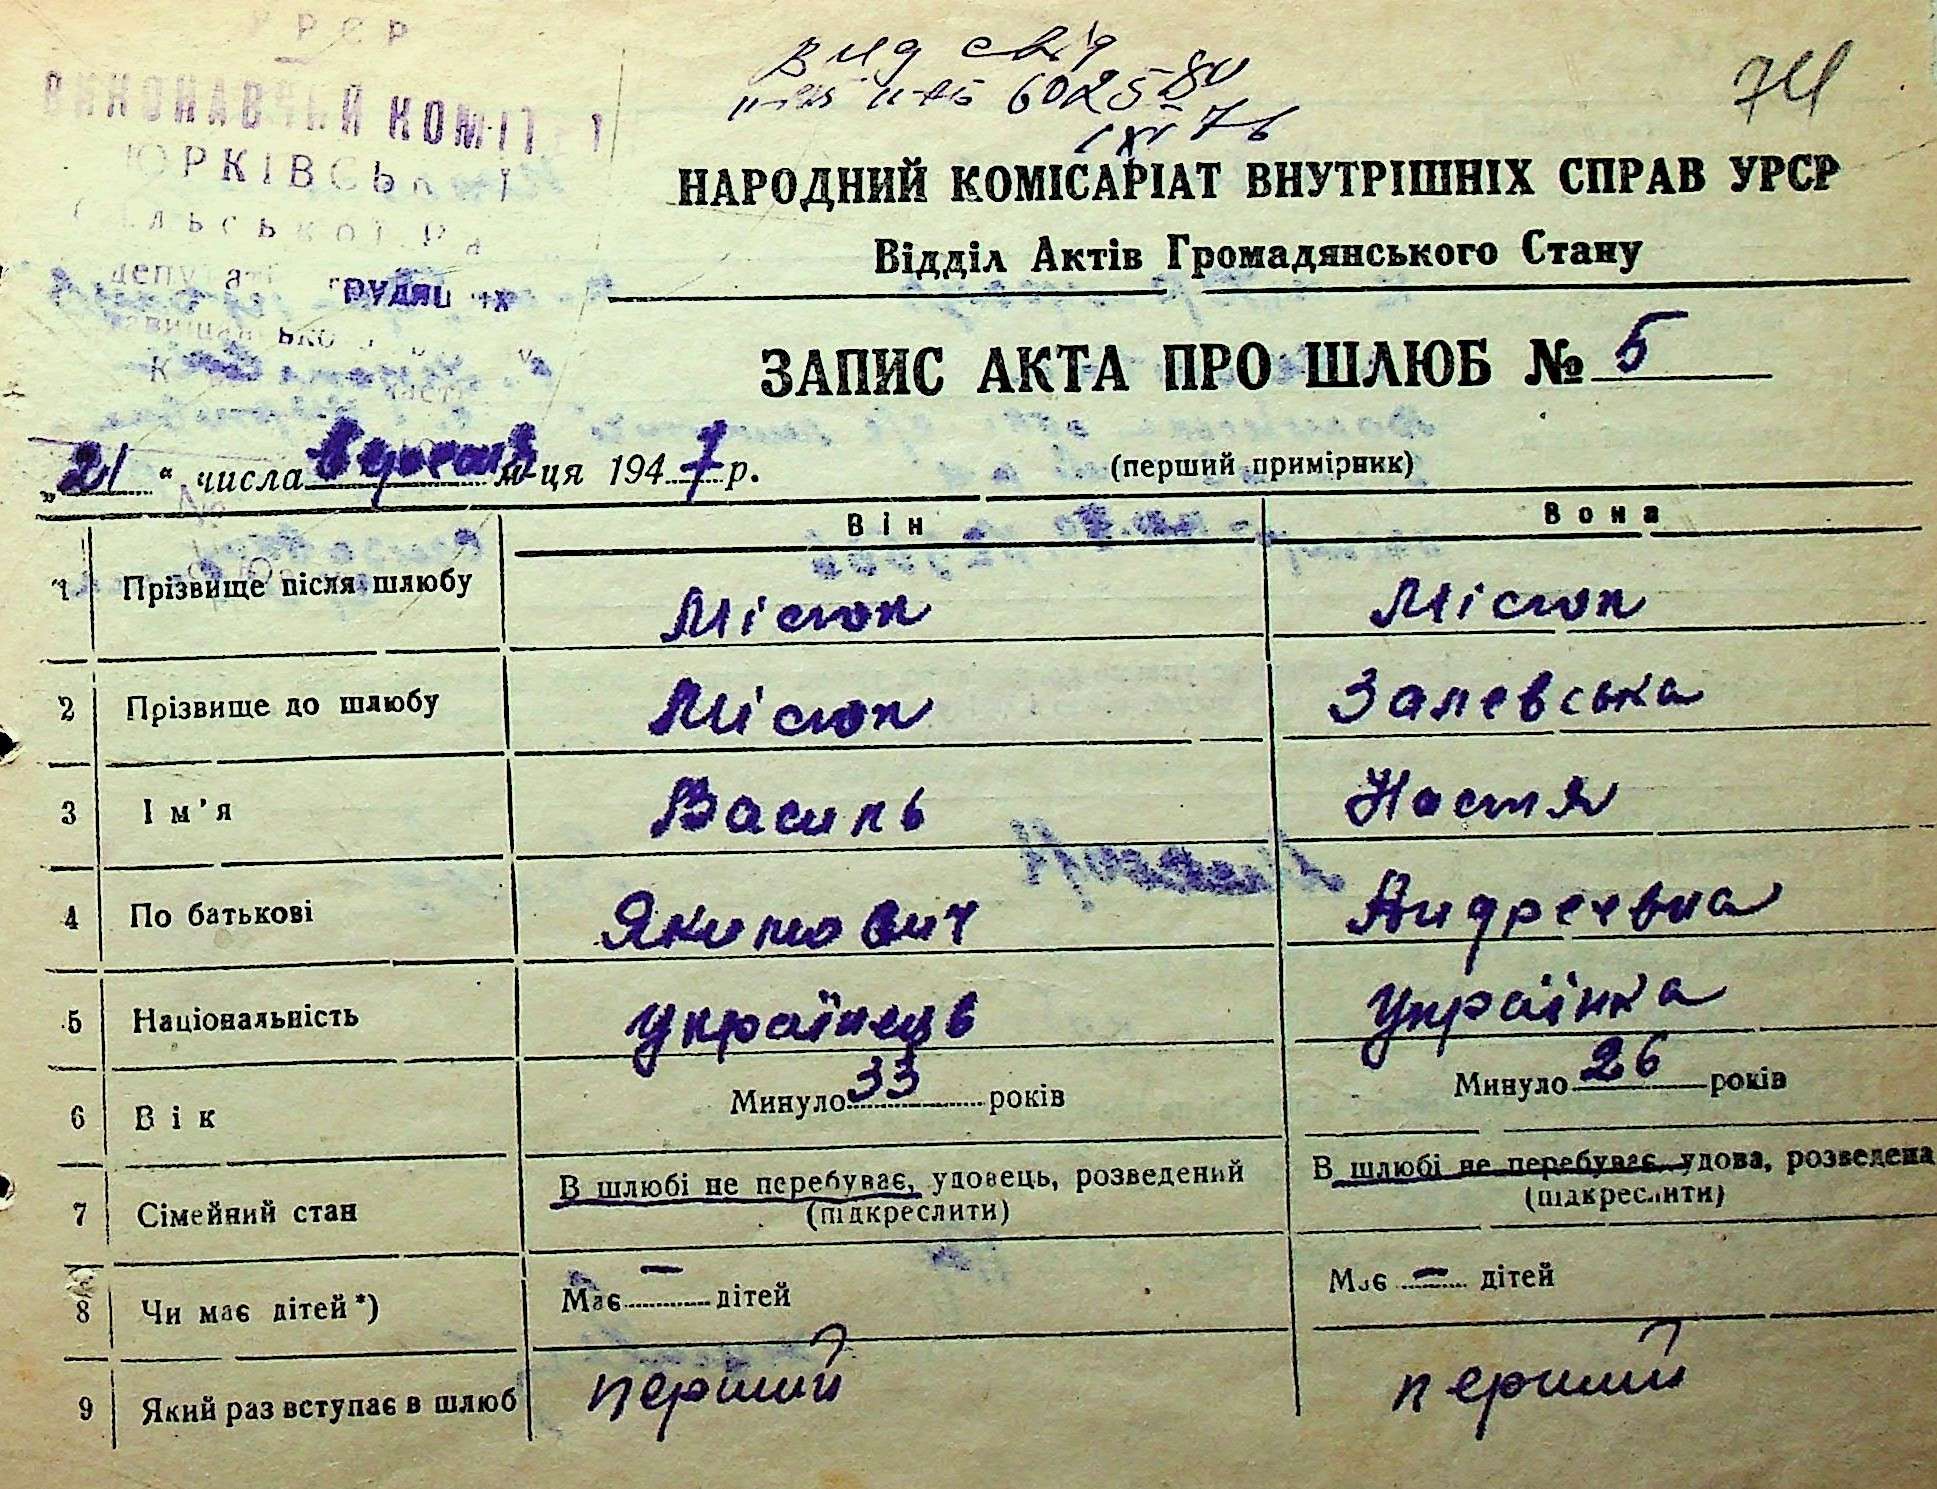 УРСР
ВИКОНАВЧИЙ КОМІТЕТ
ЮРКІВСЬКОЇ
СІЛЬСЬКОЇ РАДИ
депутатів трудящих
вид свід
602580
1 XI 76
74
НАРОДНИЙ КОМІСАРІАТ ВНУТРІШНІХ СПРАВ УРСР
Відділ Актів Громадянського Стану
ЗАПИС АКТА ПРО ШЛЮБ № 5
„21“ числа вересня м-ця 1947 р.
(перший примірник)
Він Вона
1 Прізвище після шлюбу Місюк Місюк
2 Прізвище до шлюбу Місюк Залевська
3 Ім'я Василь Настя
4 По батькові Якимович Андреевна
5 Національність українець українка
6 Вік Минуло 33 років Минуло 26 років
7 Сімейний стан В шлюбі не перебуває, удовець, розведений (підкреслити) В шлюбі не перебуває, удова, розведена (підкреслити)
8 Чи має дітей*) Має — дітей Має — дітей
9 Який раз вступає в шлюб перший перший